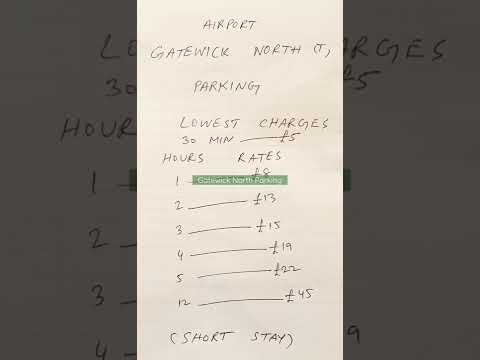 AIRPORT
GATEWICK NORTH (T)
PARKING
LOWEST CHARGES
30 MIN — £5
HOURS RATES
1 — £8
Gatewick North Parking
2 — £13
3 — £15
4 — £19
5 — £22
12 — £45
(SHORT STAY)